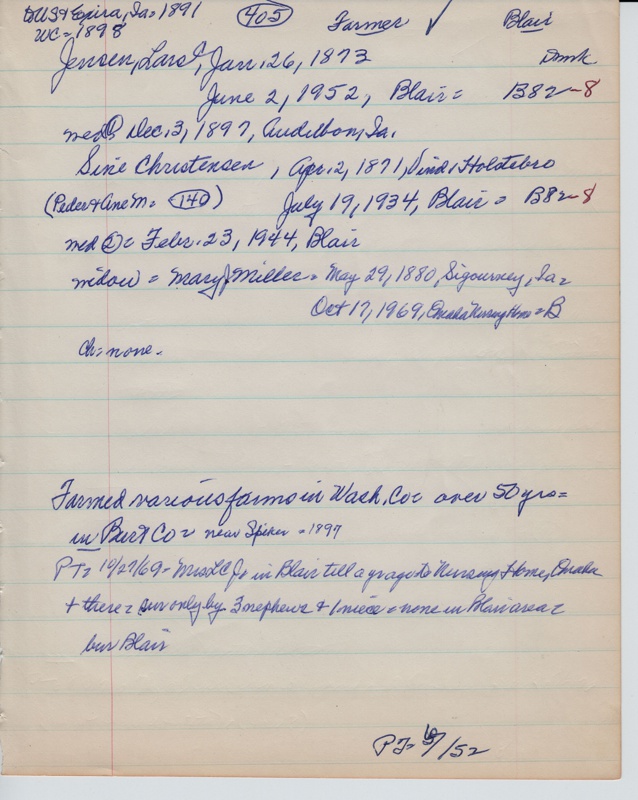 to US + Exira, Ia = 1891 (405) Farmer ✓ Blair
WC = 1898
Jensen, Lars, Jan. 26, 1873 Dmk
June 2, 1952, Blair = B82-8
med ① Dec. 3, 1897, Audubon, Ia.
Sine Christensen, Apr. 2, 1871, Vind, Holstebro
(Peder + Ane M = (140)) July 19, 1934, Blair = B82-8
med ② = Febr. 23, 1944, Blair
widow = Mary J. Miller = May 29, 1880, Sigourney, Ia =
Oct 17, 1969, Omaha Nursing Home = B
Ch = none.
Farmed various farms in Wash. Co = over 50 yrs =
in Burt Co = near Spiker = 1897
PT = 10/27/69 = Mrs L C J in Blair till a yr ago to Nursing Home, Omaha
+ there = sur only by 3 nephews + 1 niece = none in Blair area =
bur Blair
PT = 6/ /52